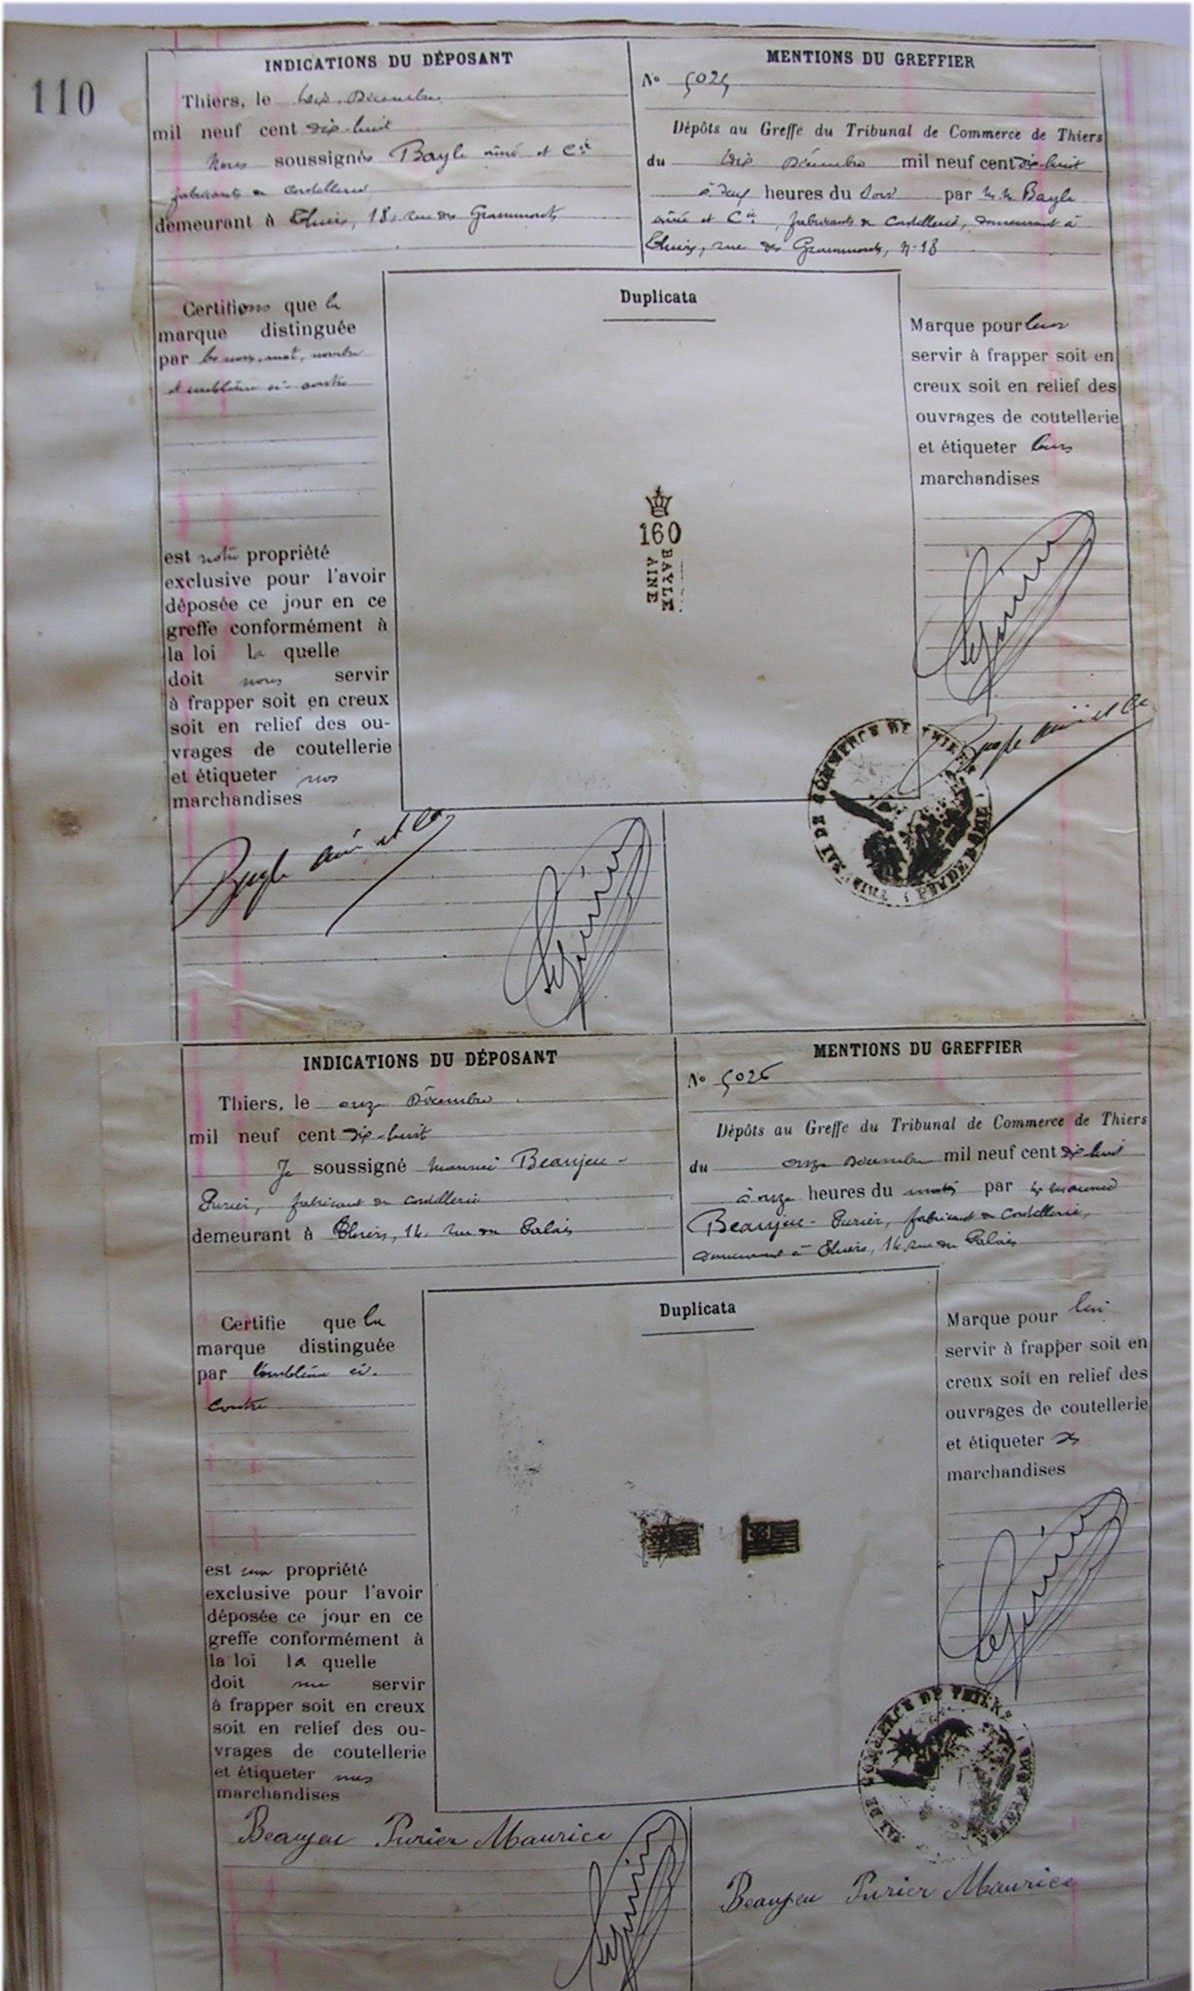 110
INDICATIONS DU DÉPOSANT
Thiers, le dix Décembre
mil neuf cent dix-huit
Nous soussignés Bayle aîné et Cie
fabricants de coutellerie
demeurant à Thiers, 18, rue des Grammonts
MENTIONS DU GREFFIER
No 5025
Dépôts au Greffe du Tribunal de Commerce de Thiers
du dix Décembre mil neuf cent dix-huit
à deux heures du soir par M.M. Bayle
aîné et Cie, fabricants de Coutellerie, demeurant à
Thiers, rue des Grammonts, n. 18
Certifions que la
marque distinguée
par les nom, mot, nombre
et emblème ci-contre
est notre propriété
exclusive pour l'avoir
déposée ce jour en ce
greffe conformément à
la loi la quelle
doit nous servir
à frapper soit en creux
soit en relief des ou-
vrages de coutellerie
et étiqueter nos
marchandises
Duplicata
160
BAYLE
AINE
Marque pour leur
servir à frapper soit en
creux soit en relief des
ouvrages de coutellerie
et étiqueter leurs
marchandises
Bayle aîné et Co
COMMERCE DE THIERS
Bayle aîné et Co
INDICATIONS DU DÉPOSANT
Thiers, le onze Décembre
mil neuf cent dix-huit
Je soussigné Maurice Beaujeu-
Purier, fabricant de coutellerie
demeurant à Thiers, 14, rue du Palais
MENTIONS DU GREFFIER
No 5026
Dépôts au Greffe du Tribunal de Commerce de Thiers
du onze Décembre mil neuf cent dix-huit
à onze heures du matin par M. Maurice
Beaujeu-Purier, fabricant de Coutellerie,
demeurant à Thiers, 14, rue du Palais
Certifie que la
marque distinguée
par l'emblème ci-
contre
est ma propriété
exclusive pour l'avoir
déposée ce jour en ce
greffe conformément à
la loi la quelle
doit me servir
à frapper soit en creux
soit en relief des ou-
vrages de coutellerie
et étiqueter mes
marchandises
Duplicata
Marque pour lui
servir à frapper soit en
creux soit en relief des
ouvrages de coutellerie
et étiqueter ses
marchandises
COMMERCE DE THIERS
Beaujeu Purier Maurice
Beaujeu Purier Maurice